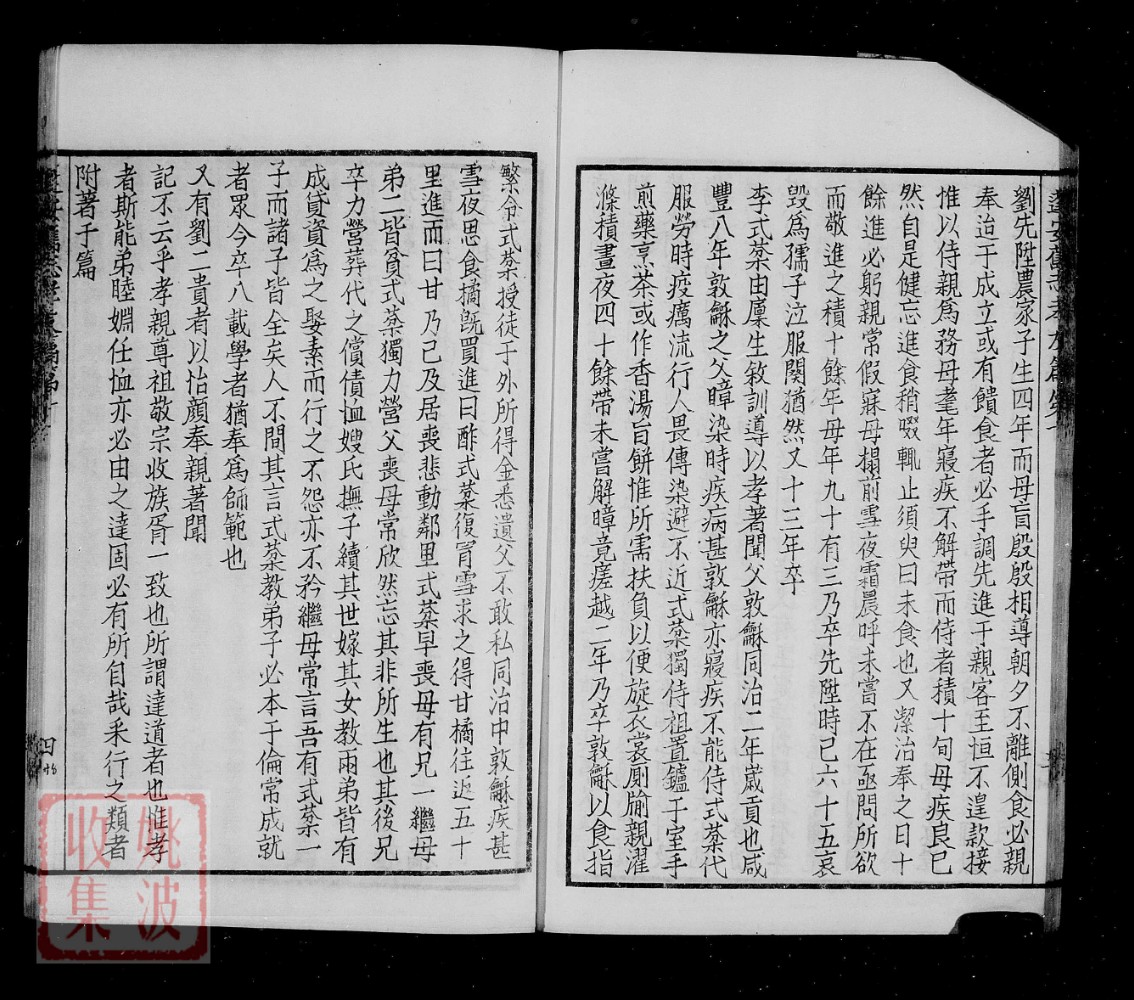 劉先陞農家子生四年而母盲殷殷相導朝夕不離側食必親
奉治于成立或有饋食者必手調先進于親客至恒不遑款接
惟以侍親為務母耄年寢疾不解帶而侍者積十旬母疾良已
然自是健忘進食稍啜輒止須臾曰未食也又潔治奉之日十
餘進必躬親常假寐母榻前雪夜霜晨呼未嘗不在亟問所欲
而敬進之積十餘年母年九十有三乃卒先陞時已六十五哀
毀為孺子泣服闋猶然又十三年卒
李式蘂由廩生敘訓導以孝著聞父敦龢同治二年歲貢也咸
豐八年敦龢之父暲染時疾病甚敦龢亦寢疾不能侍式蘂代
服勞時疫癘流行人畏傳染避不近式蘂獨侍祖置鑪于室手
煎藥烹茶或作香湯旨餅惟所需扶負以便旋衣裳廁牏親濯
滌積晝夜四十餘帶未嘗解暲竟瘥越二年乃卒敦龢以食指
繁令式蘂授徒于外所得金悉遺父不敢私同治中敦龢疾甚
雪夜思食橘既買進曰酢式蘂復冐雪求之得甘橘往返五十
里進而曰甘乃已及居喪悲動鄰里式蘂早喪母有兄一繼母
弟二皆貧式蘂獨力營父喪母常欣然忘其非所生也其後兄
卒力營葬代之償債恤嫂氏撫子續其世嫁其女教兩弟皆有
成貸資為之娶素而行之不怨亦不矜繼母常言吾有式蘂一
子而諸子皆全矣人不間其言式蘂教弟子必本于倫常成就
者眾今卒八載學者猶奉為師範也
又有劉二貴者以怡顏奉親著聞
記不云乎孝親尊祖敬宗收族胥一致也所謂達道者也惟孝
者斯能弟睦婣任恤亦必由之達固必有所自哉釆行之類者
附著于篇
姚波
收集